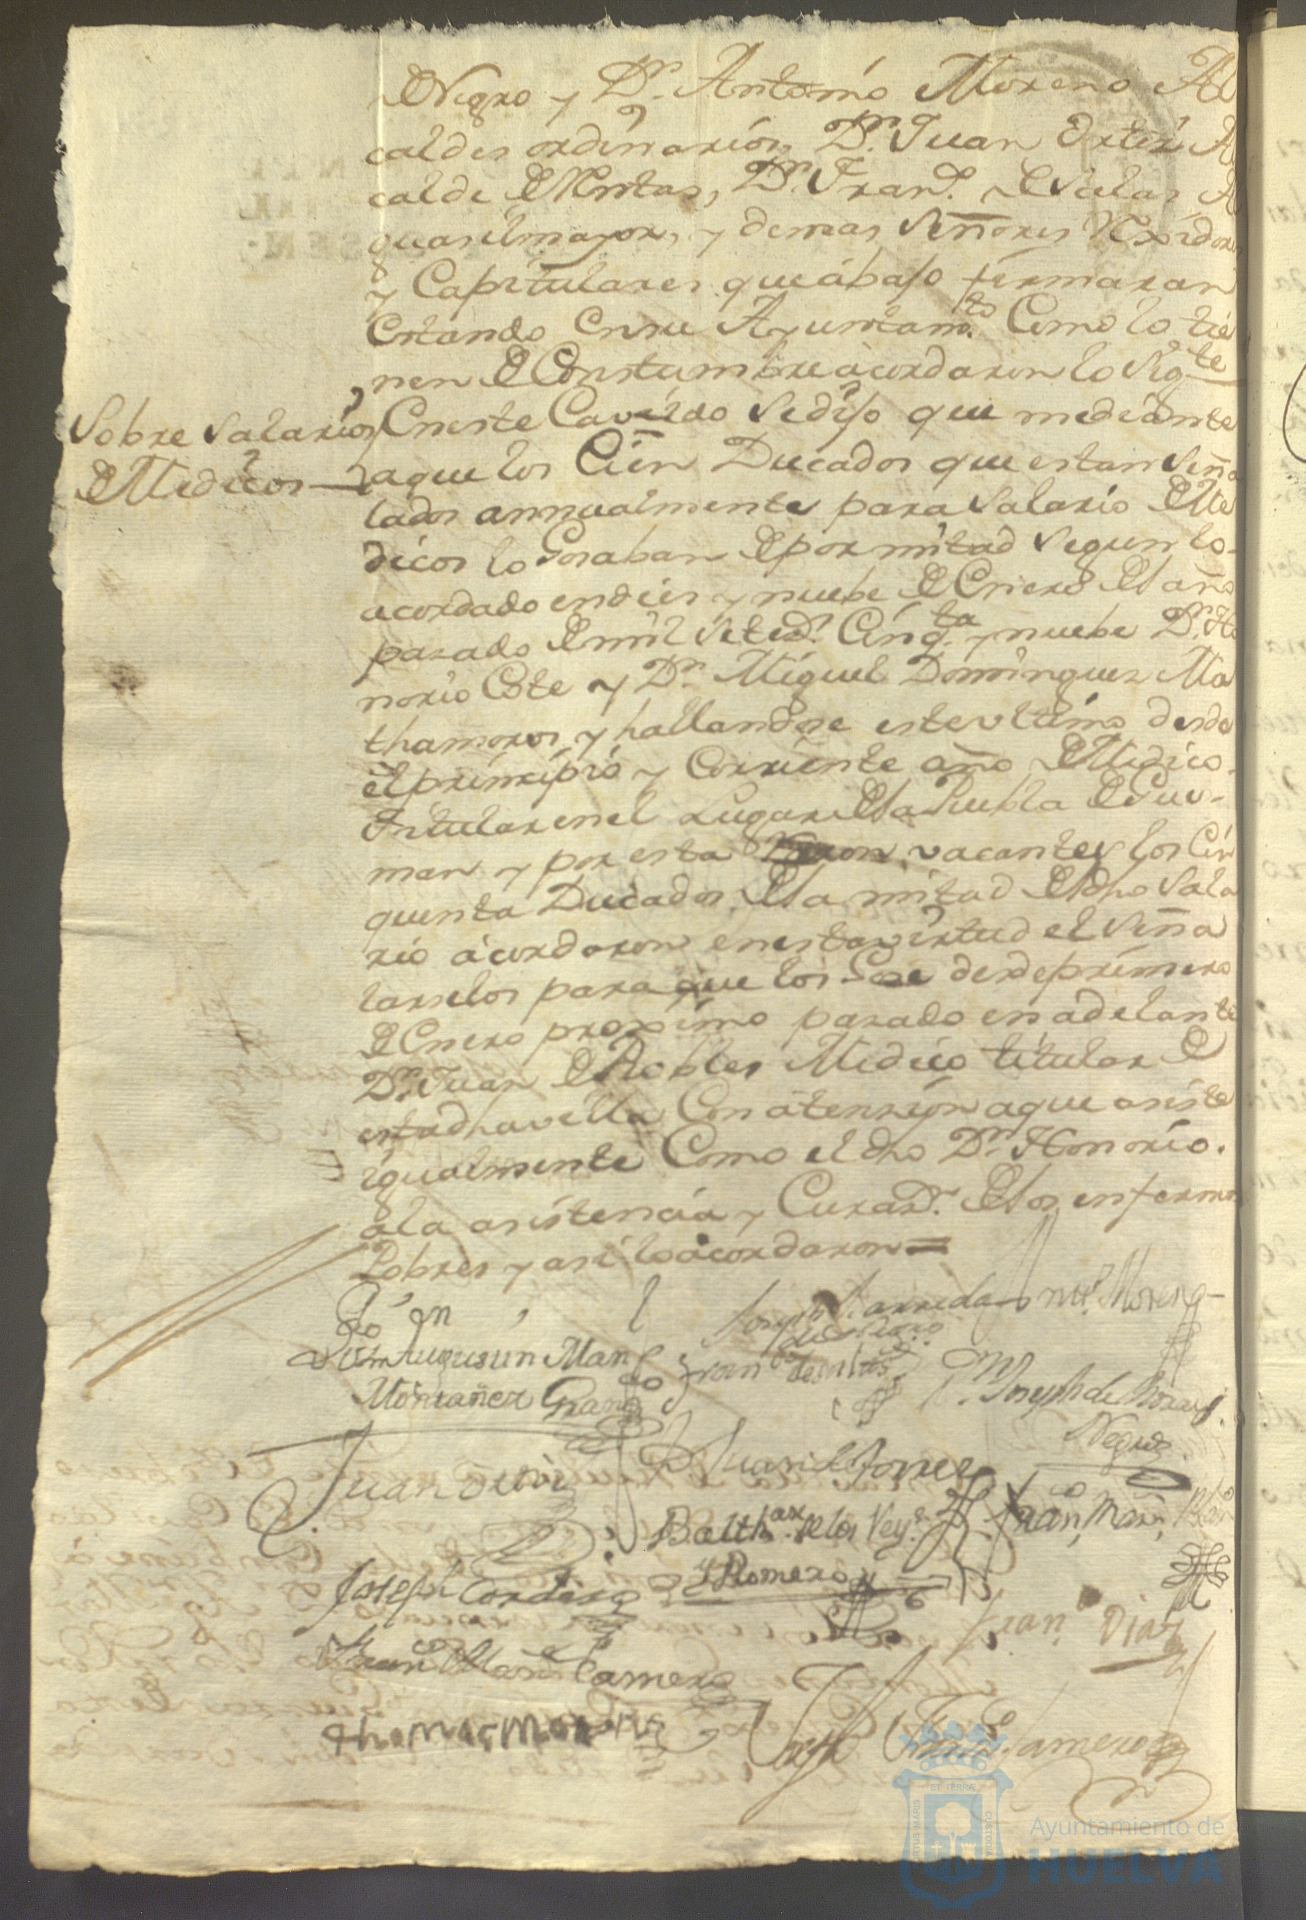 Negro y Dn. Antonio Moreno Al
caldes ordinarios, Dn. Juan Ortiz Al
calde de Rentas, Dn. Fran.co de Velas Al
guasil mayor, y demas Señores Rexidores
y Capitulares que abajo firmaran
estando en su Ayuntam.to Como lo tie
nen de Constumbre acordaron lo Sig.te
Sobre Salarios
de Medicos
En este Cavildo Se dijo que mediante
a que los Cien Ducados que estan Seña
lados annualmente para Salario de Me
dicos lo Gosaban de por mitad Segun lo
acordado en dies y nuebe de Enero del año
pasado de mil Setec.s Cinq.ta y nuebe Dn. Ho
norio Cote y Dn. Miguel Dominguez Ma
thamoros, y hallandose este ultimo desde
el principio y Corriente año de Medico
Titular en el Lugar de la Puebla de Gus
man y por esta Razon vacantes los Cin
quenta Ducados de la mitad de dho Sala
rio acordaron en esta virtud el Seña
larselos para que los Gose desde primero
de Enero proximo pasado en adelante
Dn. Juan de Robles Medico titular de
esta dha villa Con atension a que asiste
igualmente Como el dho Dn. Honorio.
a la asistencia y Curas.n de los enfermos
Pobres y asi lo acordaron
Agustin Man
Montañez
Joseph de Moraes
Negro
Juan Ortiz
Juan de Torres
Balth.ar de los Rey.s
y Romero
Fran.co Marn.
Joseph Cordero
Fran.co Diaz
Camero
thomas moreno
Joseph
Camero
Ayuntamiento de
HUELVA